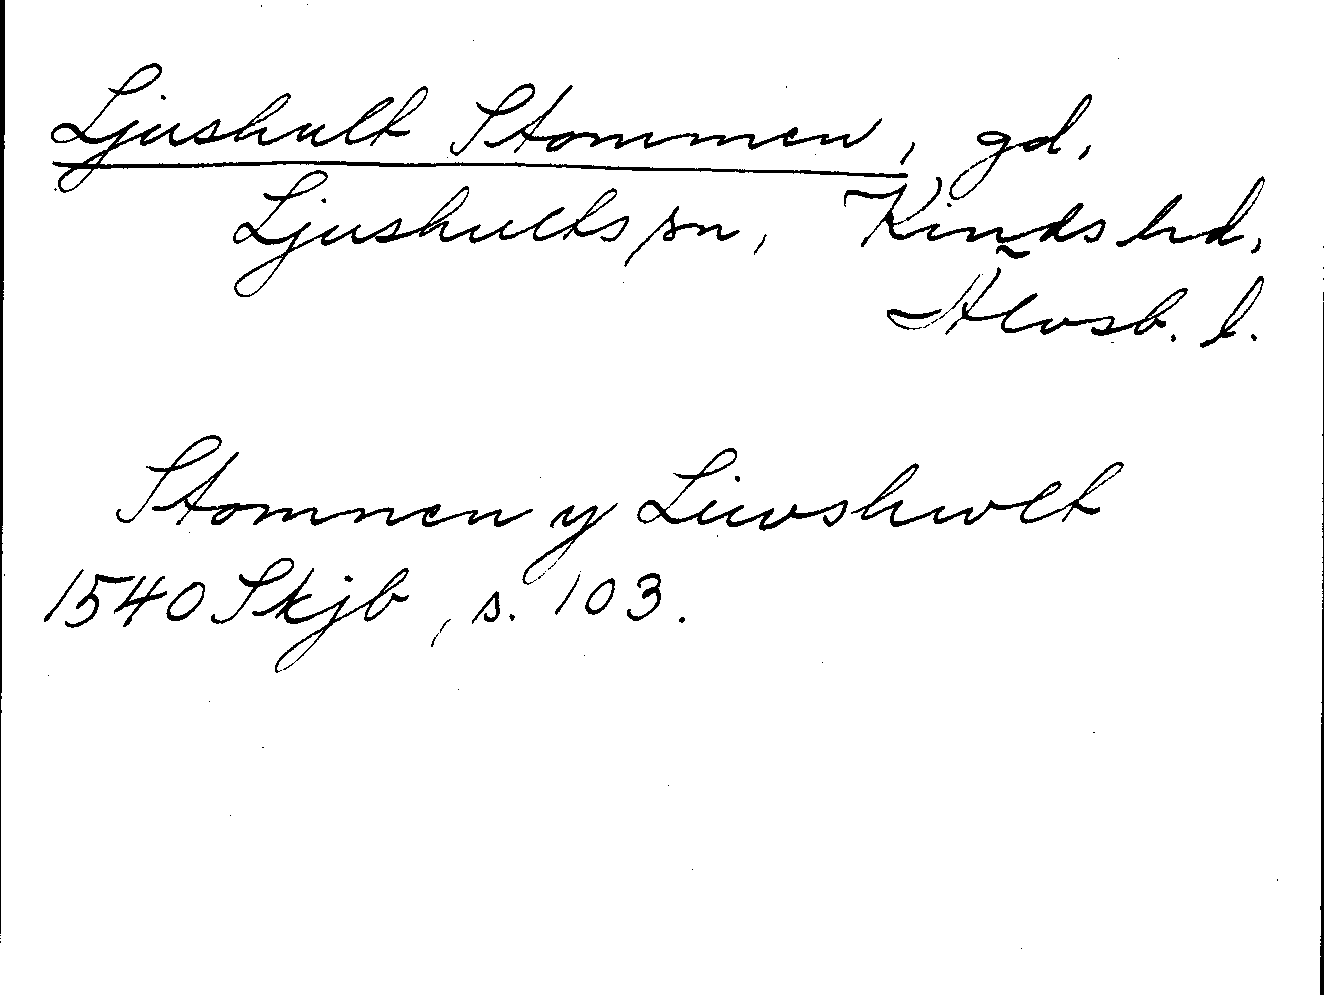 Ljushult Stommen, gd,
Ljushults sn, Kinds hd,
Älvsb. l.
Stomnen y Liwshwlt
1540 Skjb, s. 103.